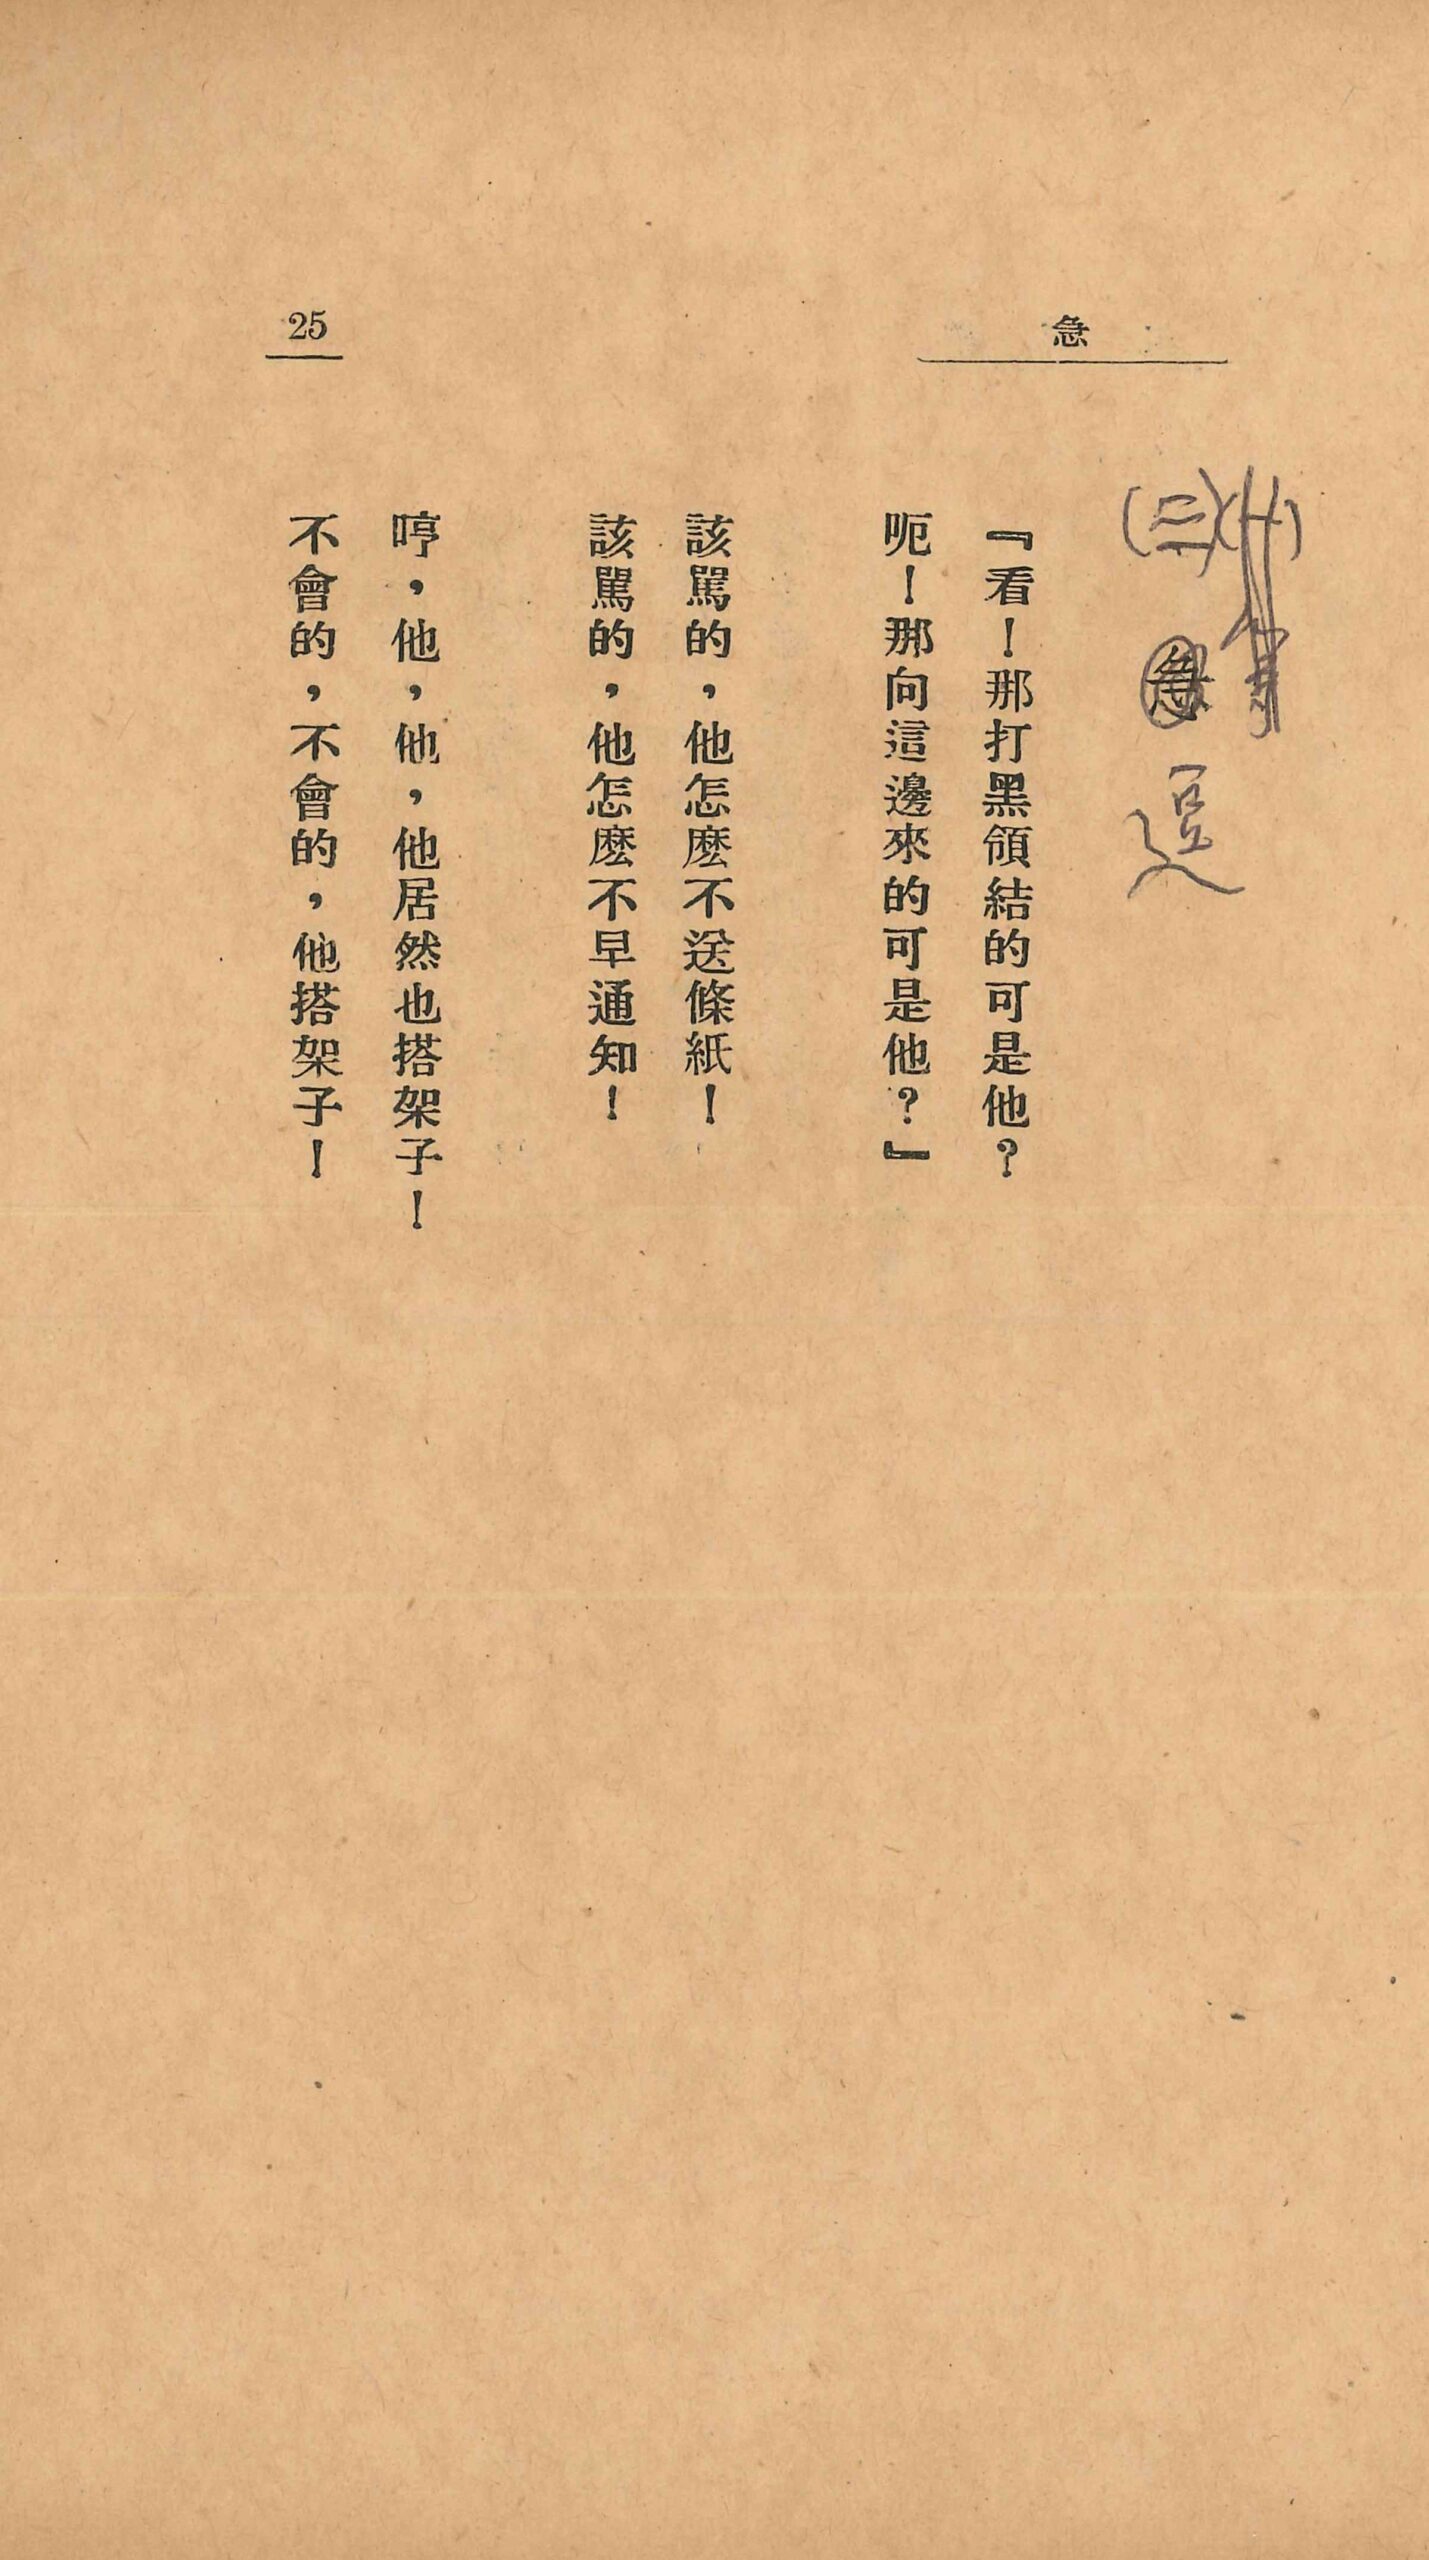 急
(三)
急
逗
『看！那打黑領結的可是他？
呃！那向這邊來的可是他？』
該罵的，他怎麽不送條紙！
該罵的，他怎麽不早通知！
哼，他，他，他居然也搭架子！
不會的，不會的，他搭架子！
25